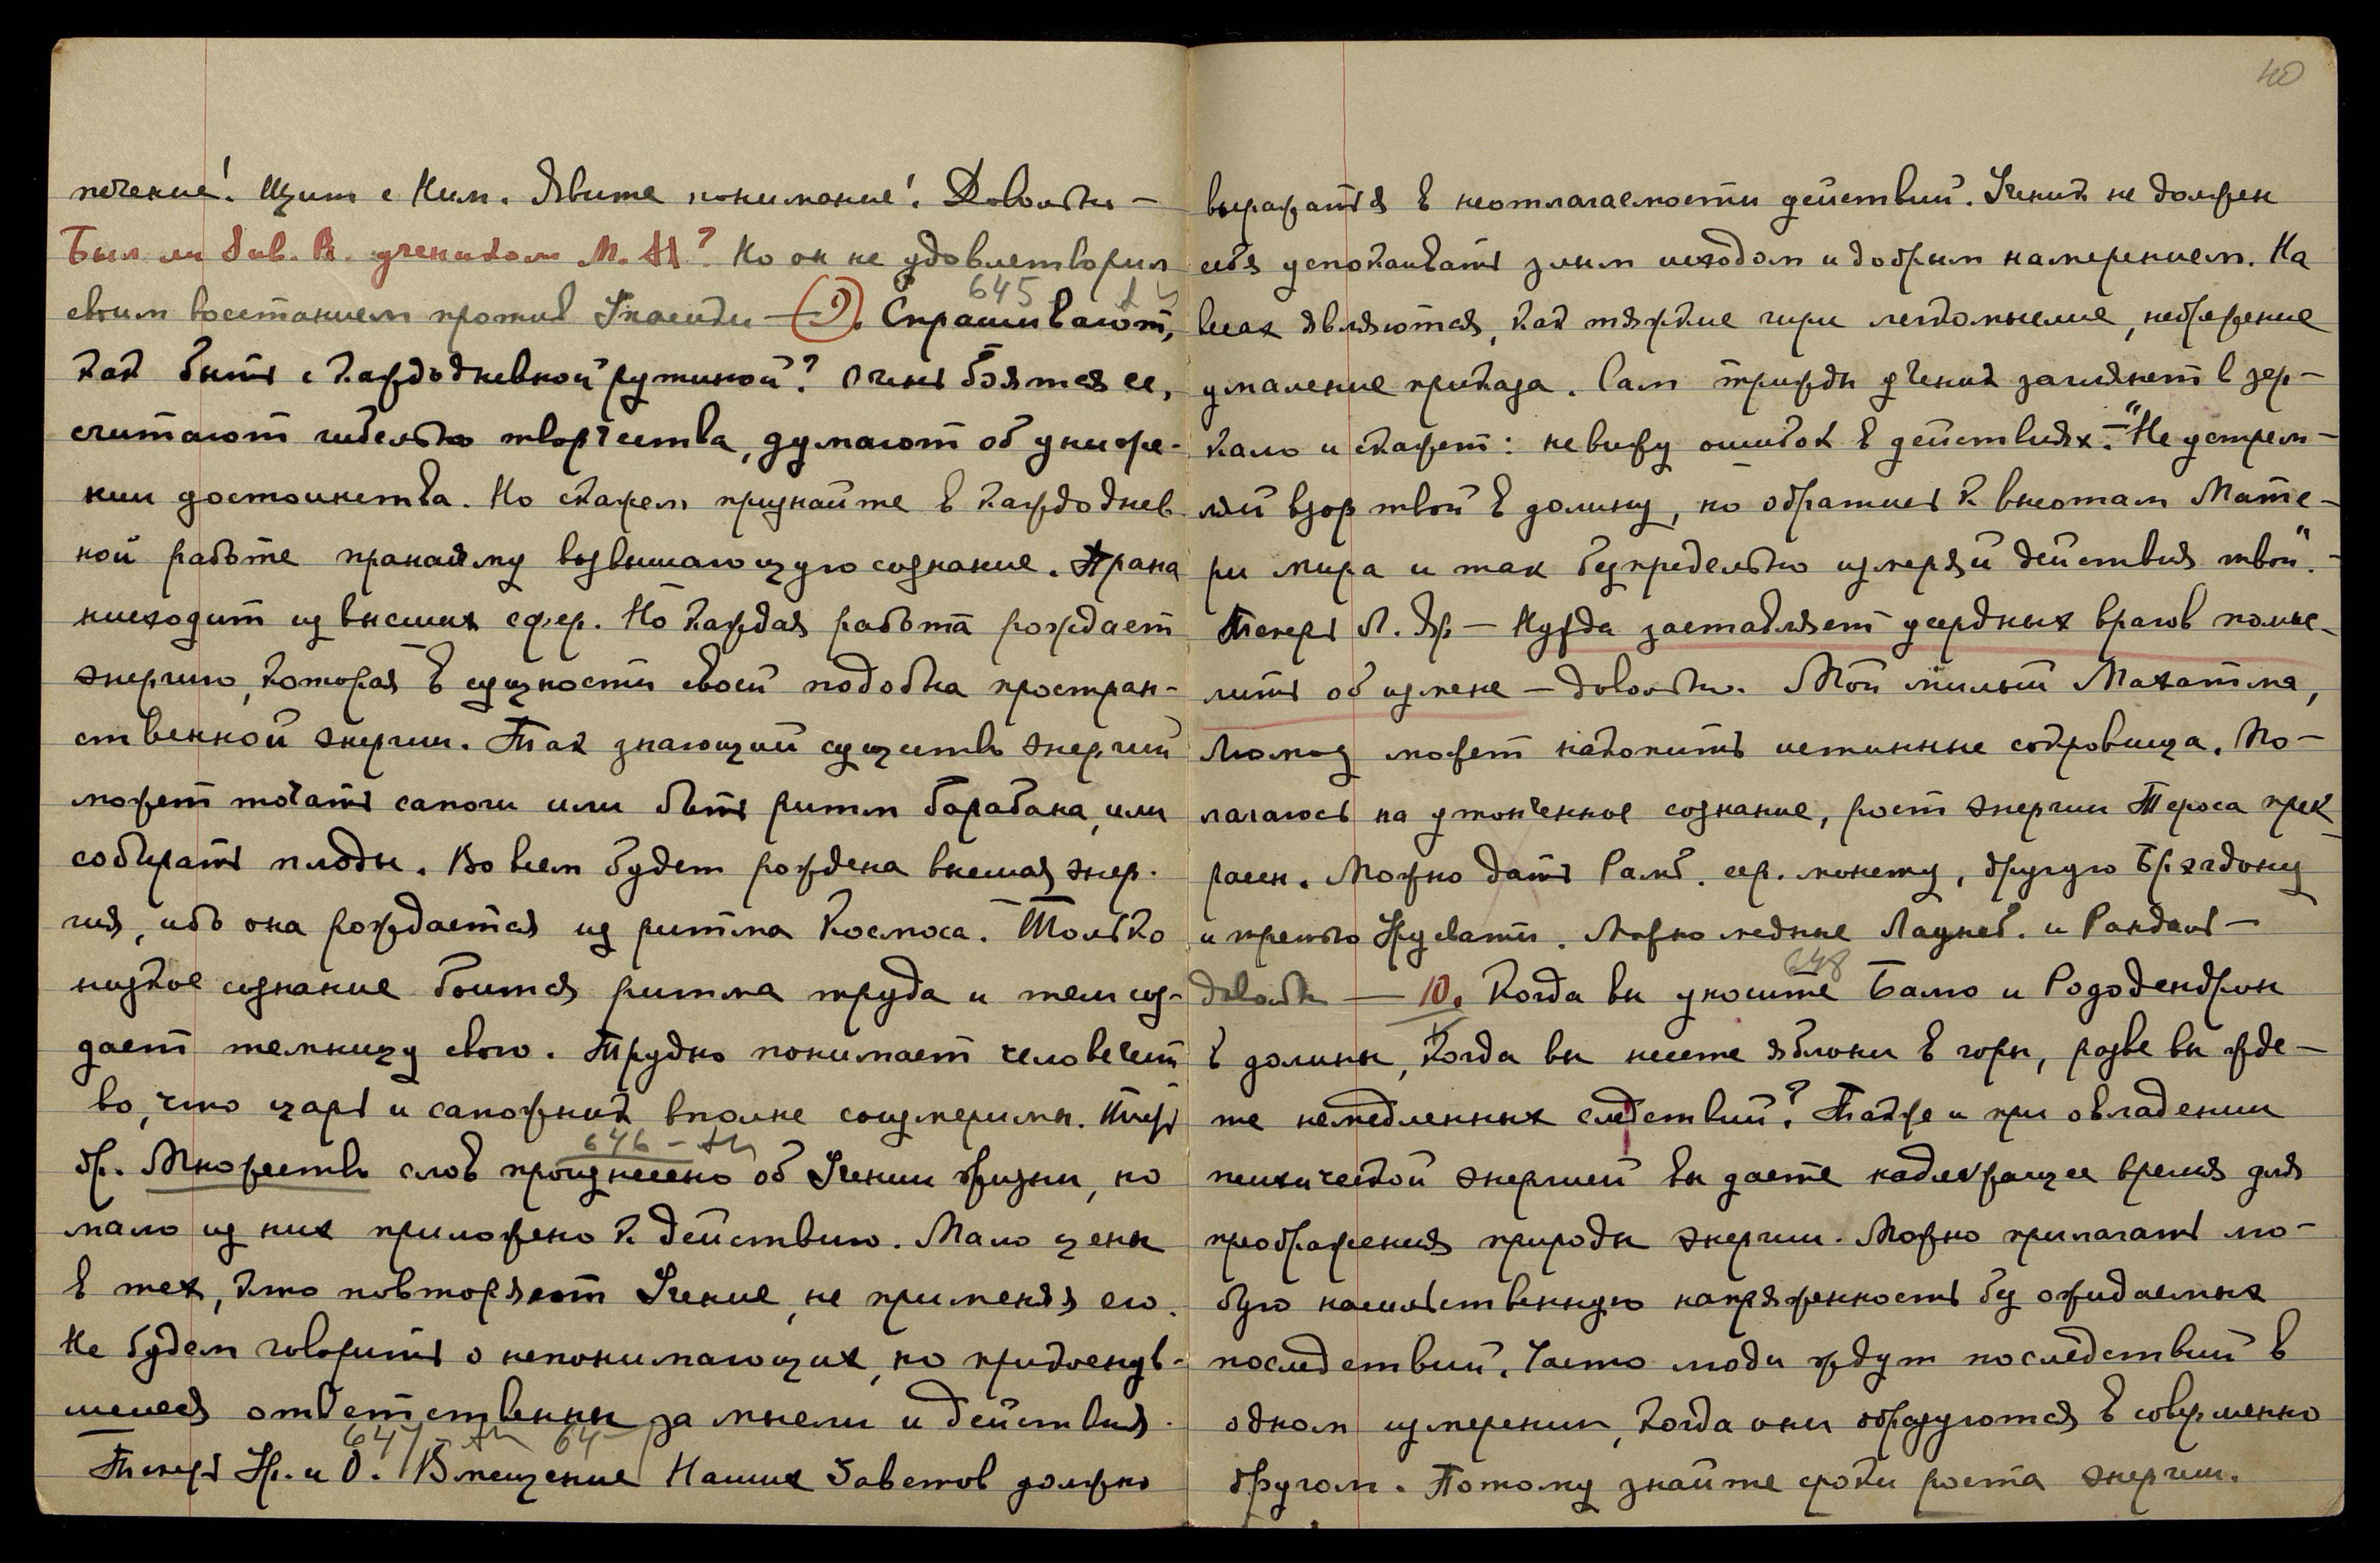 печение! Щит с Ним. Явите понимание! Довольно —
Был ли Вив. учеником М. М? Но он не удовлетворил
своим восстанием против —
645
9. Спрашивают,
как быть с каждодневной рутиной? Очень боятся ее,
считают гибелью творчества, думают об униже-
нии достоинства. Но скажем признайте в каждоднев
ной работе пранаяму возвышающую сознание. Прана
нисходит из высших сфер. Но каждая работа рождает
энергию, которая в сущности своей подобна простран-
ственной энергии. Так знающий существо энергий
может тачать сапоги или бить ритм барабана, или
собирать плоды. Во всем будет рождена высшая энер-
гия, ибо она рождается из ритма Космоса. Только
низкое сознание боится ритма труда и тем соз-
дает темницу свою. Трудно понимает человечест
во, что царь и сапожник вполне соизмеримы.
646
др. Множество слов произнесено об Учении жизни, но
мало из них приложено к действию. Мало цены
в тех, кто повторяют Учение, не применяя его.
Не будем говорить о непонимающих, но придвинув-
шиеся ответственны за мысли и действия.
647
Теперь Др. и О. Вмещение Наших Заветов должно
40
выражаться в неотлагаемости действий. Ученик не должен
себя успокаивать злым исходом и добрым намерением. На
весах являются, как тяжкие гири легкомыслие, небрежение
умаление приказа. Сам трижды ученик заглянет в зер-
кало и скажет: не вижу ошибок в действиях. — "Не устрем-
ляй взор твой в долину, но обратись к высотам Мате-
ри мира и так беспредельно измеряй действия твои". —
Теперь Л. Др. — Нужда заставляет усердных врагов помыс-
лить об измене — довольно. Мой милый Махатма,
Люмоу может накопить истинные сокровища. По-
лагаюсь на утонченное сознание, рост энергии Тероса прек
расен. Можно дать Рамб. сер. монету, другую
и третью. Можно медные и —
648
довольно — 10. Когда вы уносите Балю и Рододендрон
в долины, когда вы несете яблони в горы, разве вы жде-
те немедленных следствий? Также и при овладении
психической энергией вы даете надлежащее время для
преображения природы энергии. Можно прилагать лю-
бую насильственную напряженность без ожидаемых
последствий. Часто люди ждут последствий в
одном измерении, когда они образуются в совершенно
другом. Потому знайте сроки роста энергии.